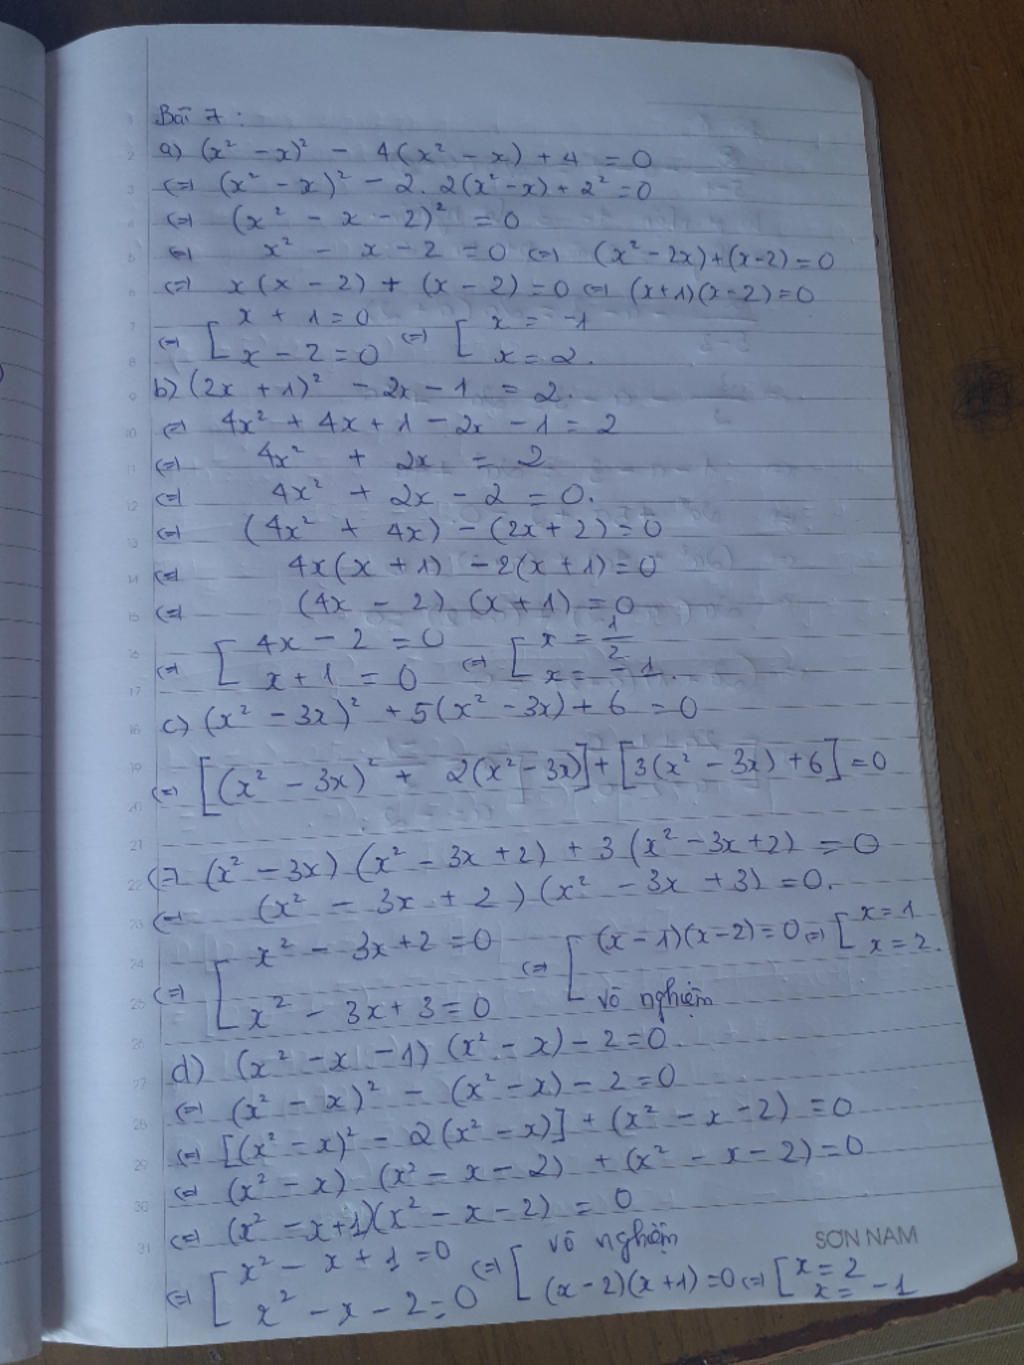 Bài 7 :
a) (x² - x)² - 4(x² - x) + 4 = 0
<=> (x² - x)² - 2. 2(x² - x) + 2² = 0
<=> (x² - x - 2)² = 0
<=> x² - x - 2 = 0 <=> (x² - 2x) + (x - 2) = 0
<=> x(x - 2) + (x - 2) = 0 <=> (x+1)(x - 2) = 0
<=> [ x + 1 = 0 <=> [ x = -1
x - 2 = 0 x = 2.
b) (2x + 1)² - 2x - 1 = 2.
<=> 4x² + 4x + 1 - 2x - 1 = 2
<=> 4x² + 2x = 2
<=> 4x² + 2x - 2 = 0.
<=> (4x² + 4x) - (2x + 2) = 0
<=> 4x(x + 1) - 2(x + 1) = 0
<=> (4x - 2) (x + 1) = 0
<=> [ 4x - 2 = 0 <=> [ x = 1/2
x + 1 = 0 x = -1.
c) (x² - 3x)² + 5(x² - 3x) + 6 = 0
<=> [(x² - 3x)² + 2(x² - 3x)] + [3(x² - 3x) + 6] = 0
<=> (x² - 3x) (x² - 3x + 2) + 3 (x² - 3x + 2) = 0
<=> (x² - 3x + 2) (x² - 3x + 3) = 0.
<=> [ x² - 3x + 2 = 0 <=> [ (x - 1)(x - 2) = 0 <=> [ x = 1
x = 2.
x² - 3x + 3 = 0 vô nghiệm
d) (x² - x - 1) (x² - x) - 2 = 0.
<=> (x² - x)² - (x² - x) - 2 = 0
<=> [(x² - x)² - 2(x² - x)] + (x² - x - 2) = 0
<=> (x² - x) (x² - x - 2) + (x² - x - 2) = 0
<=> (x² - x + 1)(x² - x - 2) = 0
SƠN NAM
<=> [ x² - x + 1 = 0 <=> [ vô nghiệm
x² - x - 2 = 0 (x - 2)(x + 1) = 0 <=> [ x = 2
x = -1